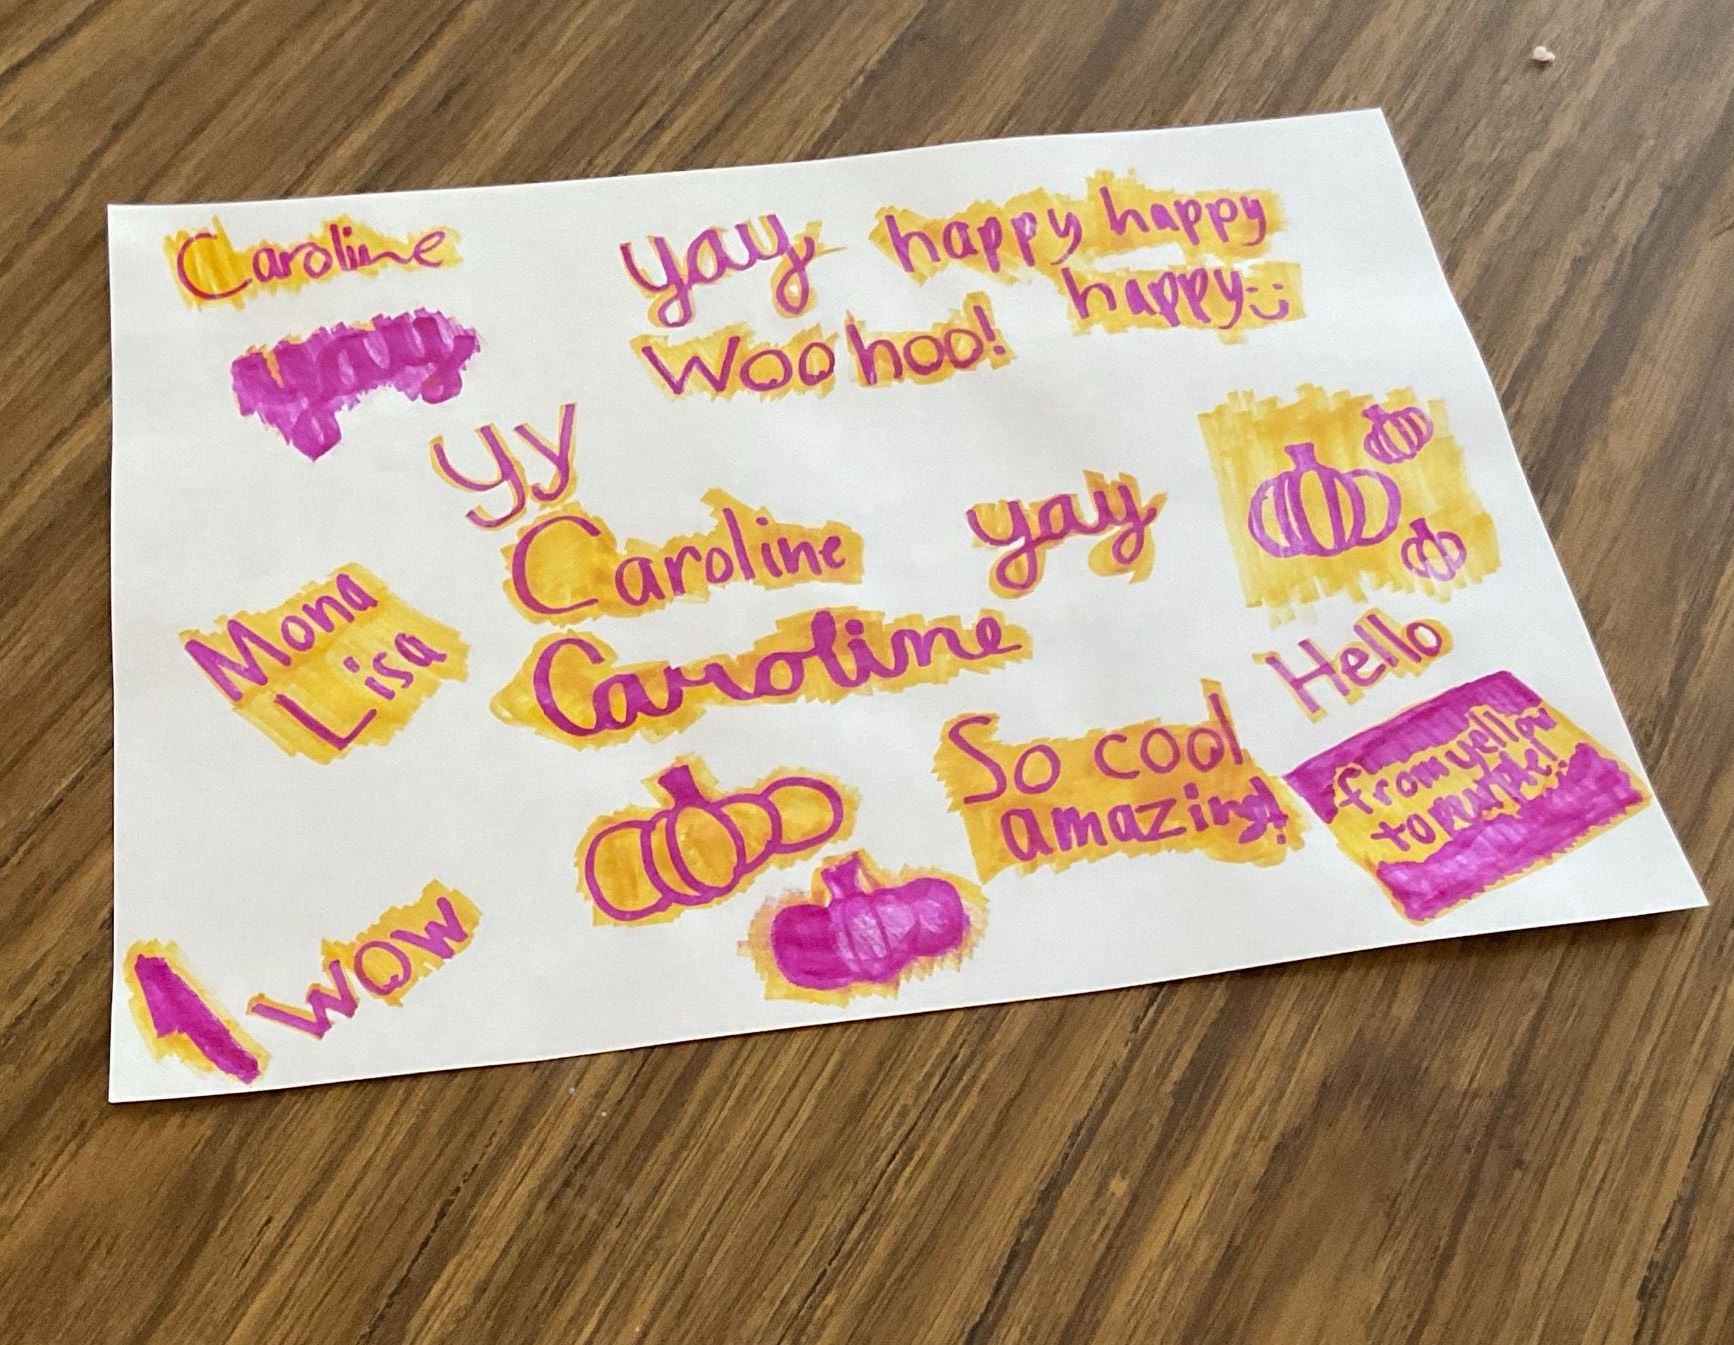 Caroline
yay
yay
happy happy
happy
Woohoo!
yy
Caroline
yay
Mona
Lisa
Caroline
Hello
So cool
amazing!
from yellow
to purple!
wow